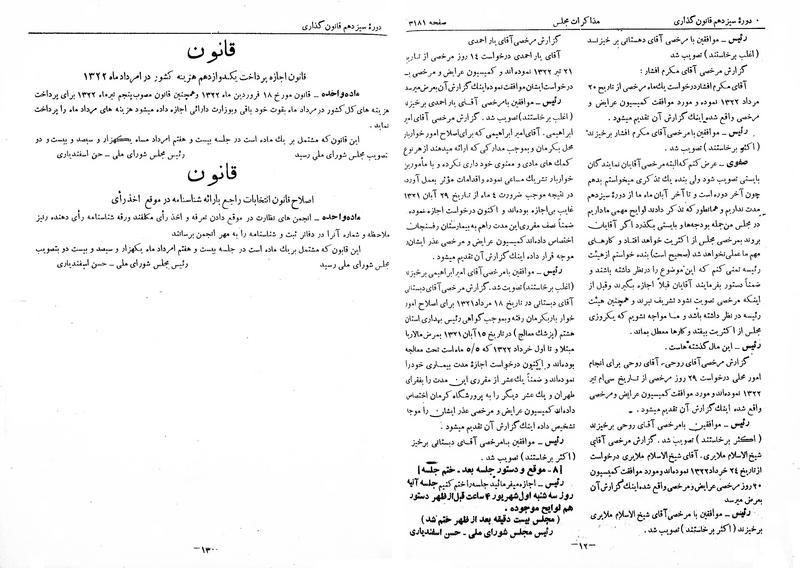 ۰ دورهٔ سیزدهم قانون گذاری
مذاکرات مجلس
صفحه ۳۱۸۱
رئیس ــ موافقین با مرخصی آقای دهستانی بر خیزند
(اغلب برخاستند) تصویب شد.
گزارش مرخصی آقای مکرم افشار:
آقای مکرم افشار درخواست یك‌ماه مرخصی از تاریخ ۲۰
مرداد ۱۳۲۲ نموده و مورد موافقت کمیسیون عرایض و
مرخصی واقع شده اینك گزارش آن تقدیم میشود.
رئیس ــ موافقین با مرخصی آقای مکرم افشار برخیزند
(اکثر برخاستند) تصویب شد.
صفوی ــ عرض کنم که البته مرخصی آقایان نمایندگان
بایستی تصویب شود ولی بنده یك تذکری میخواستم بدهم
چون آخر دوره است و تا آخر آبان ماه ما از دورهٔ سیزدهم
مدت نداریم و همانطور که تذکر دادند لوایح مهمی ما داریم
در مجلس من‌جمله بودجه‌ها و بایستی بگذرد اگر آقایان
بروند بمرخصی مجلس از اکثریت خواهد افتاد و کارهای
مهم ما عملی نخواهد شد (صحیح است) بنده خواستم از هیئت
رئیسه تمنی کنم که این موضوع را در نظر داشته باشند و
ضمناً دستور بفرمایند آقایان قبلاً اجازه بگیرند و قبل از
اینکه مرخصی تصویب نشود تشریف نبرند و همچنین هیئت
رئیسه در نظر داشته باشد و ما مواجه نشویم که یکروزی
مجلس از اکثریت بیفتد و کارها معطل بماند.
رئیس ــ این مال گذشته هاست.
گزارش مرخصی آقای روحی ــ آقای روحی برای انجام
امور محلی درخواست ۲۹ روز مرخصی از تاریخ سی‌ام تیر
۱۳۲۲ نموده‌اند و مورد موافقت کمیسیون عرایض و مرخصی
واقع شده اینك گزارش آن تقدیم میشود.
رئیس ــ موافقین با مرخصی آقای روحی برخیزند
(اکثر برخاستند) تصویب شد. گزارش مرخصی آقای
شیخ‌الاسلام ملایری. آقای شیخ الاسلام ملایری درخواست
از تاریخ ۲۴ خرداد ۱۳۲۲ نموده‌اند و مورد موافقت کمیسیون
۲۰ روز مرخصی عرایض و مرخصی واقع شده اینك گزارش آن
بعرض میرسد
رئیس ــ موافقین با مرخصی آقای شیخ‌الاسلام ملایری
برخیزند (اکثر برخاستند) تصویب شد.
ــ۱۲ــ
گزارش مرخصی آقای یار احمدی
آقای یار احمدی درخواست ۱۴ روز مرخصی از تاریخ
۲۱ تیر ۱۳۲۲ نموده‌اند و کمیسیون عرایض و مرخصی با
درخواست ایشان موافقت نموده اینك گزارش آن بعرض میرسد
رئیس ــ موافقین با مرخصی آقای یار احمدی برخیزند
(اغلب برخاستند) تصویب شد. گزارش مرخصی آقای امیر
ابراهیمی. آقای امیر ابراهیمی که برای اصلاح امور خواربار
محل بکرمان و بموجب مدارکی که ارائه میدهند از هر نوع
کمك های مادی و معنوی خود داری نکرده و با مأمورین
خواربار تشریك مساعی نموده و اقدامات مؤثر بعمل آورده
در نتیجه موجب ضرورت ۴ ماه از تاریخ ۲۹ آبان ۱۳۲۱
غایب بی‌اجازه بوده‌اند و اکنون درخواست اجازه نموده
ضمناً نصف مقرری این مدت راهم به بیمارستان رفسنجان
اختصاص داده‌اند کمیسیون عرایض و مرخصی عذر ایشان را
موجه قرار داده اینك گزارش آن تقدیم میشود.
رئیس ــ موافقین با مرخصی آقای امیر ابراهیمی برخیزند
(اغلب برخاستند) تصویب شد. گزارش مرخصی آقای دبستانی
آقای دبستانی در تاریخ ۱۸ مرداد ۱۳۲۱ برای اصلاح امور
خوار بار بکرمان رفته و بموجب گواهی رئیس بهداری استان
هشتم (پزشك معالج) در تاریخ ۱۵ آبان ۱۳۲۱ بمرض مالاریا
مبتلا و تا اول خرداد ۱۳۲۲ که ۵/۵ ماه است تحت معالجه
بوده‌اند و اکنون درخواست اجازهٔ مدت بیماری خود را
نموده‌اند و ضمناً یك‌عشر از مقرری این مدت را بفقرای
طهران و یك عشر دیگر را به پرورشگاه کرمان اختصاص
داده‌اند کمیسیون عرایض و مرخصی عذر ایشان را موجه
تشخیص داده اینك گزارش آن تقدیم میشود.
رئیس ــ موافقین با مرخصی آقای دبستانی برخیزند
(اکثر برخاستند) تصویب شد.
[۸ ــ موقع و دستور جلسه بعد ــ ختم جلسه]
رئیس ــ اجازه میفرمائید جلسه را ختم کنیم جلسه آتیه
روز سه شنبه اول شهریور ۴ ساعت قبل از ظهر دستور
هم لوایح موجوده.
(مجلس بیست دقیقه بعد از ظهر ختم شد)
رئیس مجلس شورای ملی ــ حسن اسفندیاری
دورهٔ سیزدهم قانون گذاری
قانون
قانون اجازه پرداخت یکدوازدهم هزینه کشور در امرداد ماه ۱۳۲۲
ماده واحده ــ قانون مورخ ۱۸ فروردین ماه ۱۳۲۲ و همچنین قانون مصوب پنجم تیرماه ۱۳۲۲ برای پرداخت
هزینه های کل کشور در مرداد ماه بقوت خود باقی و بوزارت دارائی اجازه داده میشود هزینه های مرداد ماه را پرداخت
نماید.
این قانون که مشتمل بر یك ماده است در جلسه بیست و هفتم امرداد ماه یکهزار و سیصد و بیست و دو
بتصویب مجلس شورای ملی رسید.
رئیس مجلس شورای ملی ــ حسن اسفندیاری
قانون
اصلاح قانون انتخابات راجع بارائه شناسنامه در موقع اخذ رأی
ماده واحده ــ انجمن های نظارت در موقع دادن تعرفه و اخذ رأی مکلفند ورقه شناسنامه رأی دهنده را نیز
ملاحظه و شماره آنرا در دفاتر ثبت و شناسنامه را به مهر انجمن برسانند
این قانون که مشتمل بر یك ماده است در جلسه بیست و هفتم امرداد ماه یکهزار و سیصد و بیست و دو بتصویب
مجلس شورای ملی رسید
رئیس مجلس شورای ملی ــ حسن اسفندیاری
ــ۱۳ــ